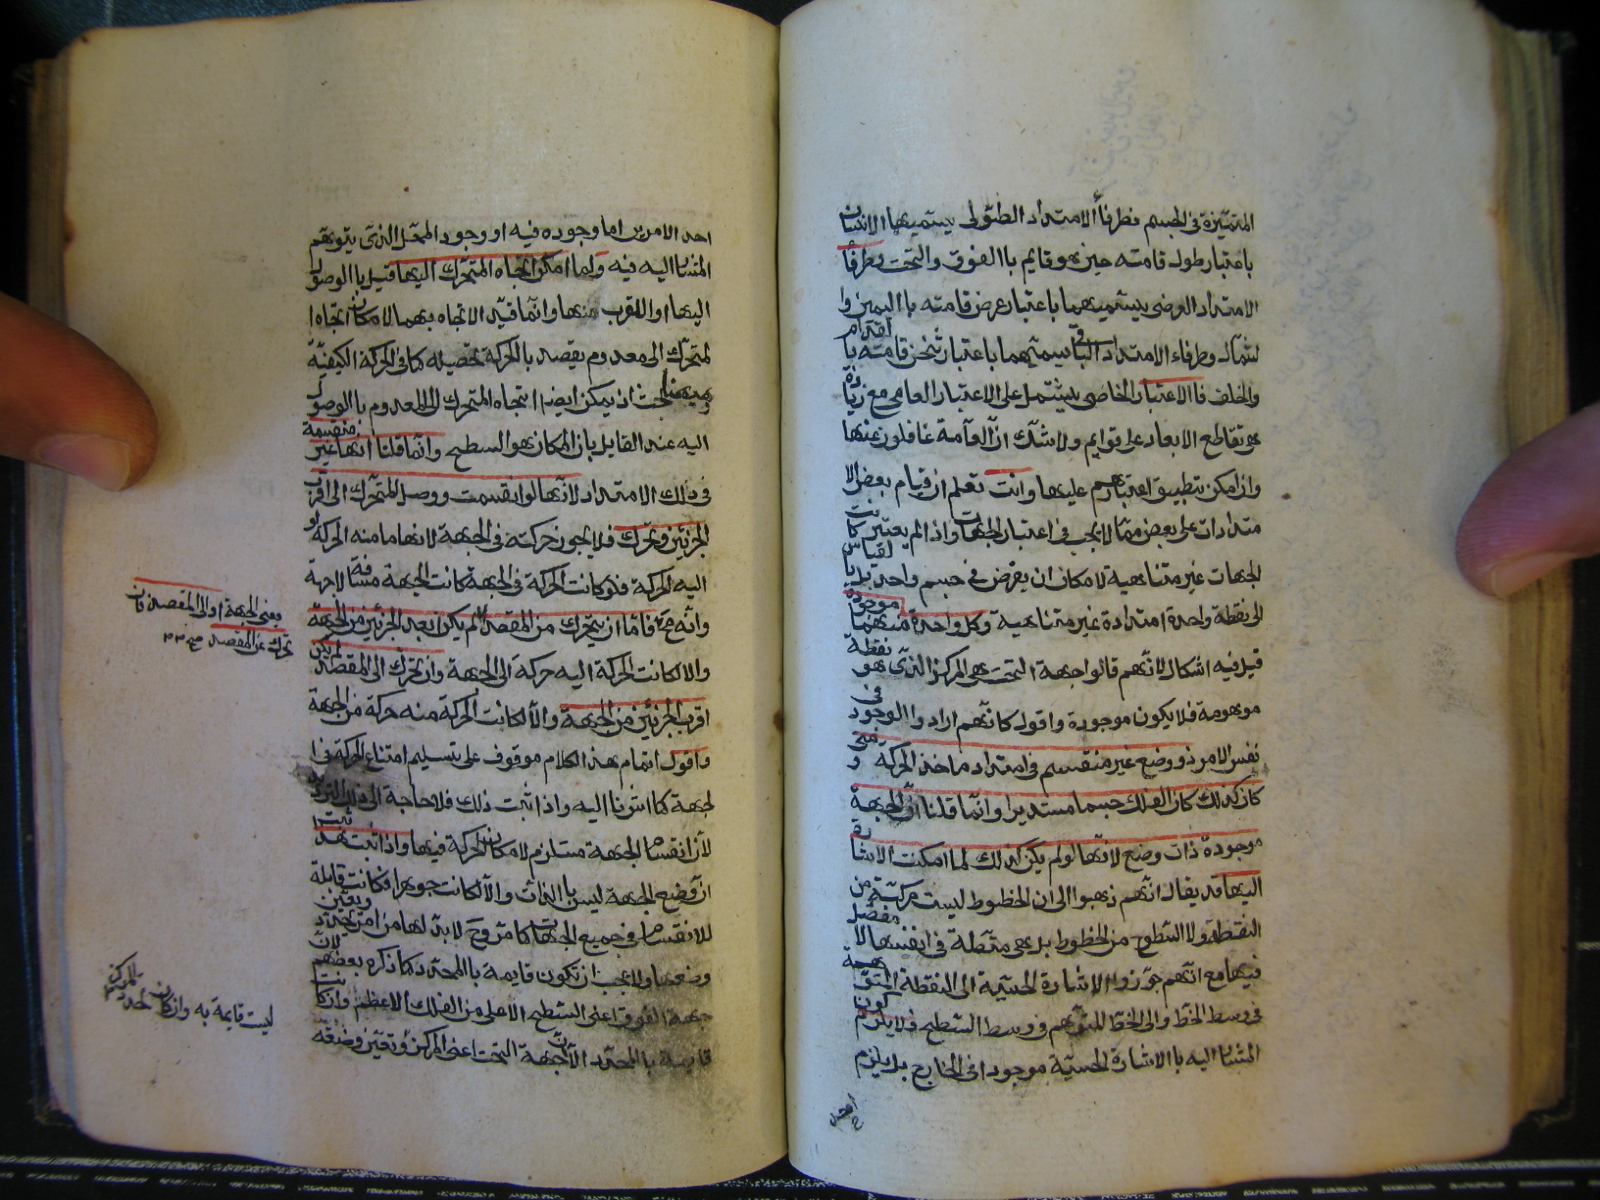 المتميزة فى الجسم فطرفا الامتداد الطولى يسميهما الانسان
باعتبار طول قامته حين هو قايم باالفوق والتحت وطرفا
الامتداد العرضى يسميهما باعتبار عرض قامته باليمين وا
لشمال وطرفاء الامتداد الباقى يسميهما باعتبار ثخن قامته باقدام
والخلف فاالاعتبار الخاصى يشتمل على الاعتبار العامى مع زيادة
هو تقاطع الابعاد على قوايم ولا شك ان العامة غافلون عنها
وان امكن تطبيق اعتبارهم عليها وانت تعلم ان قيام بعض الا
متدادات على بعض مما لا يجب فى اعتبار الجهات واذا لم يعتبر كانت
الجهات غير متناهية لامكان ان يفرض فى جسم واحد بل باالقياس
الى نقطة واحدة امتدادة غير متناهية وكل واحدة منهما موجودة
قيل فيه اشكال لانهم قالوا جهة التحت هى المركز الذى هو نقطة
موهومة فلا يكون موجودة واقول كانهم ارادوا الوجود فى
نفس الامر ذو وضع غير منقسم فى امتداد ماخذ الحركة ومتى
كان كذلك كان الفلك جسما مستديرا وانما قلنا ان الجهة
موجودة ذات وضع لانها لو لم يكن كذلك لما امكنت الاشارة
اليها قد يقال انهم ذهبوا الى ان الخطوط ليست مركبة من
النقطة ولا السطوح من الخطوط بل هى متصلة فى انفسها لا مفصل
فيها مع انهم جوزوا الاشارة الحسية الى النقطة المتوهمة
فى وسط الخط والى الخط المتوهم فى وسط السطح فلا يلزم كون
المشار اليه باالاشارة الحسية موجودا فى الخارج بل يلزم
احد الامرين اما وجوده فيه او وجود المحل الذى يتوهم
المشار اليه فيه ولما امكن اتجاه المتحرك اليها قيل باالوصول
اليها او القرب منها وانما قيد الاتجاه بهما لامكان اتجاه ا
لمتحرك الى معدوم يقصد باالحركة تحصيله كما فى الحركة الكيفية
وههنا بحث اذ يمكن ايضا اتجاه المتحرك الى المعدوم باالوصول
اليه عند القايل بان المكان هو السطح وانما قلنا انها غير منقسمة
فى ذلك الامتداد لانها لو انقسمت ووصل المتحرك الى اقرب
الجزئين وتحرك فلا يجوز حركته فى الجهة لانها ما منه الحركة او
اليه الحركة فلو كانت الحركة فى الجهة كانت الجهة مسافة لا جهة
وانه ح فاما ان يتحرك من المقصد لم يكن ابعد الجزئين من الجهة
والا لكانت الحركة اليه حركة الى الجهة وان تحرك الى المقصد لم يكن
اقرب الجزئين من الجهة والا لكانت الحركة منه حركة من الجهة
واقول اتمام هذا الكلام موقوف على تسليم امتناع الحركة فى ا
لجهة كما اشرنا اليه واذا ثبت ذلك فلا حاجة الى ذلك الترديد
لان انقسام الجهة مستلزم لامكان الحركة فيها واذا ثبت هذا ثبت
ان وضع الجهة ليس باالذات والا لكانت جوهرا فكانت قابلة
للانقسام فى جميع الجهات كما مر وح لا بد لها من امر يحدد ويعين
وضعها ولا يجب ان تكون قايمة باالمحدد كما ذكره بعضهم لان
جهة الفوق اعنى السطح الاعلى من الفلك الاعظم وان كانت
قايمة باالمحدد الا ان جهة التحت اعنى المركز وتعين وضعه
ومعنى الجهة او الى المقصد فان
تحرك عن المقصد صح
ليست قايمة به وان كان تحدد المركز